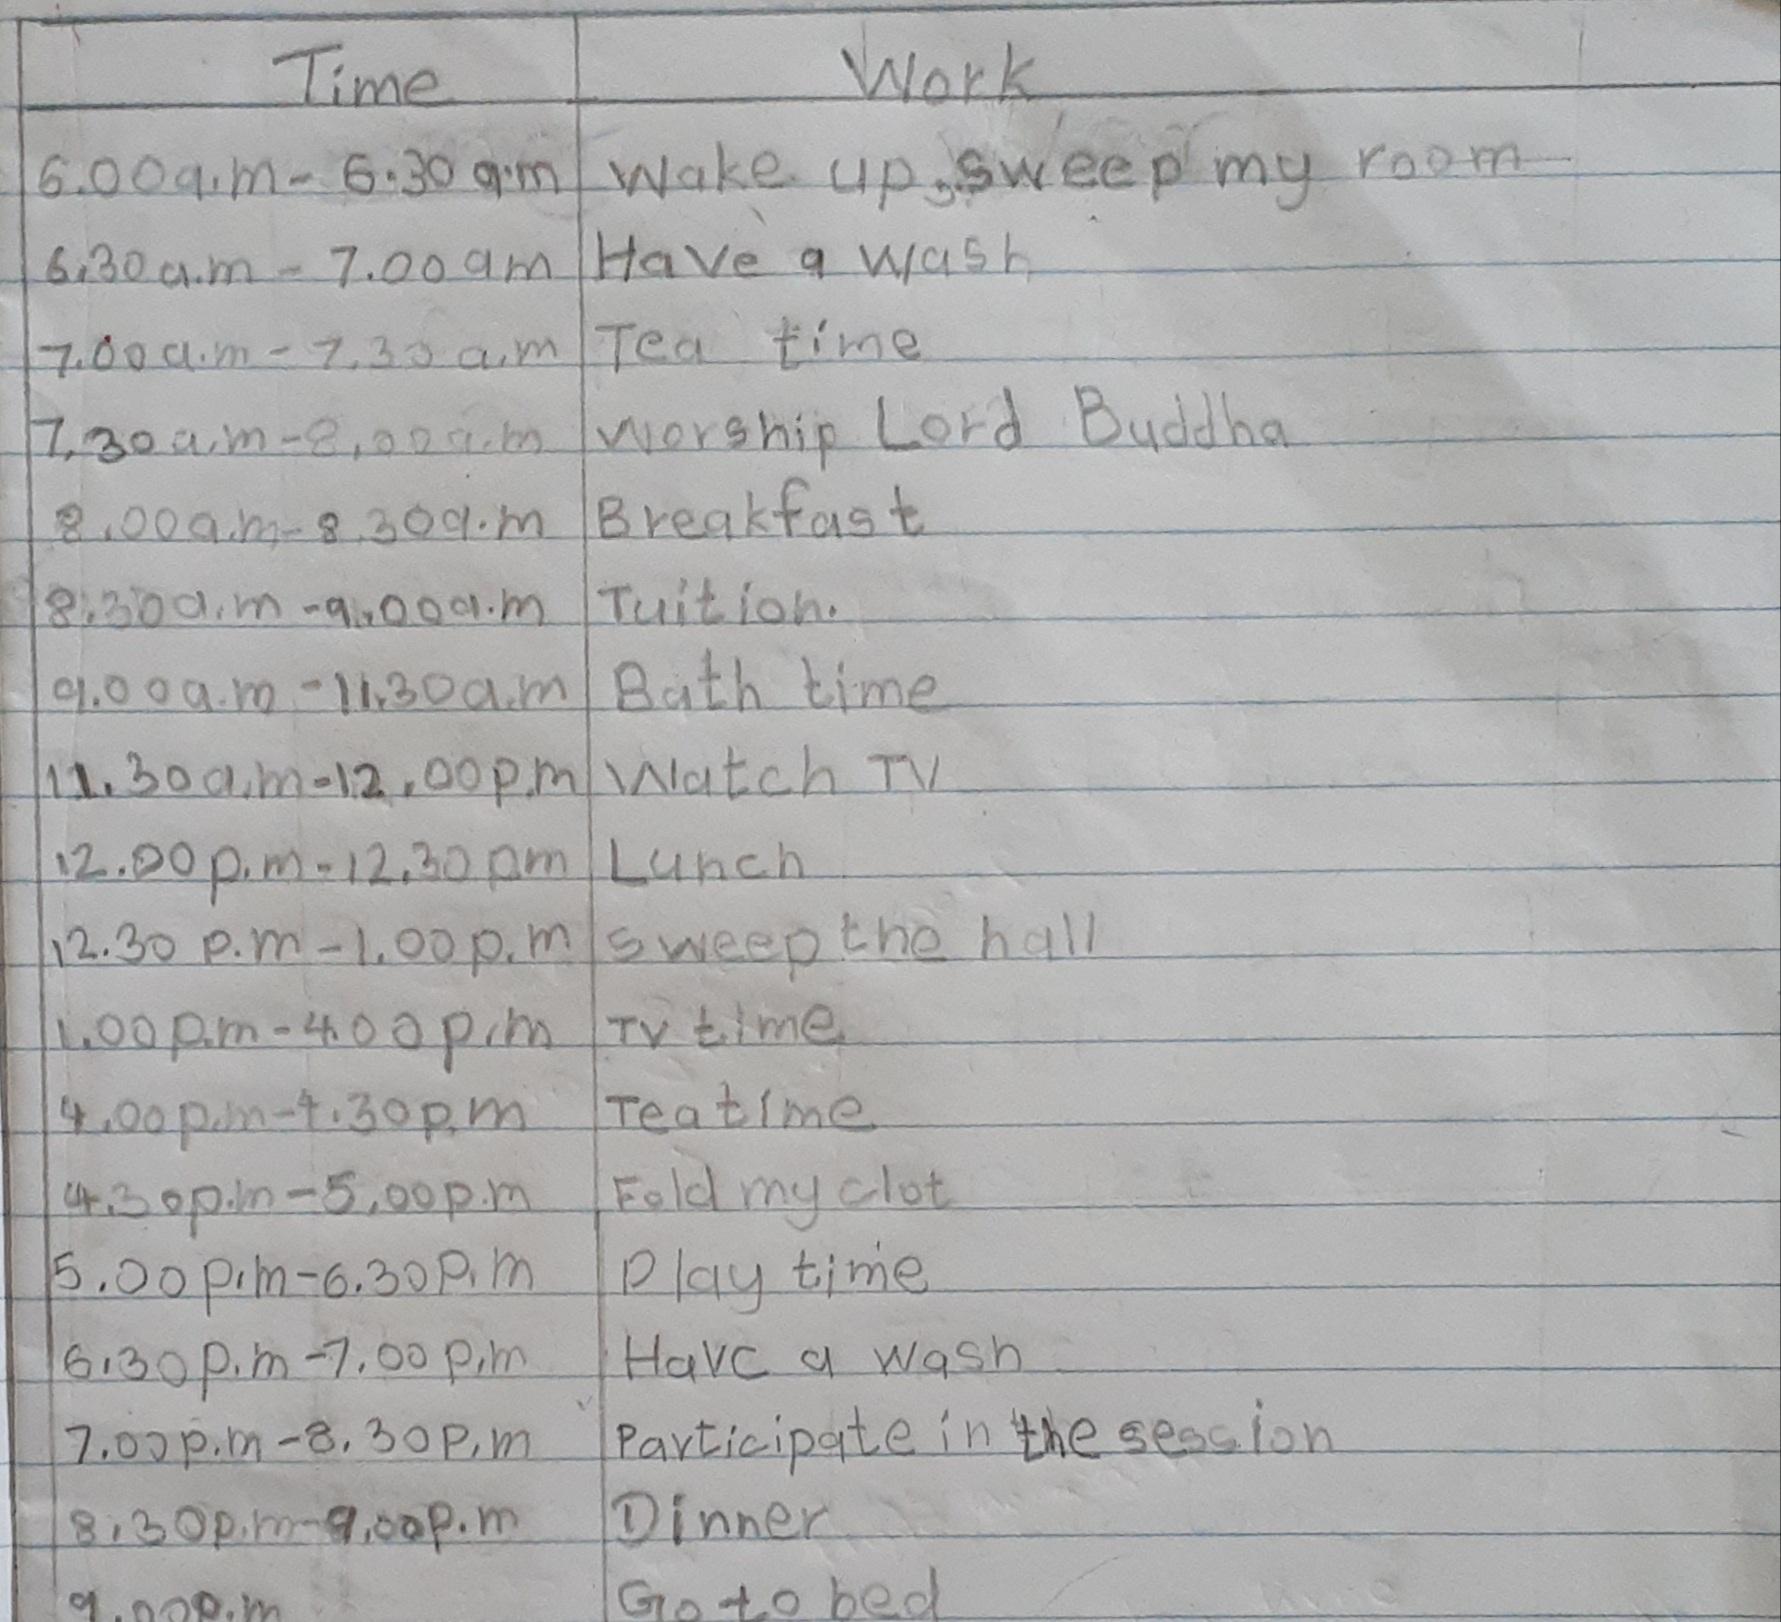 Time Work
6.00a.m - 6.30 a.m Wake up, sweep my room
6.30a.m - 7.00 am Have a wash
7.00a.m - 7.30 a.m Tea time
7.30a.m - 8.00a.m Worship Lord Buddha
8.00a.m - 8.30a.m Breakfast
8.30a.m - 9.00a.m Tuition.
9.00a.m - 11.30a.m Bath time
11.30a.m - 12.00p.m Watch TV
12.00p.m - 12.30 pm Lunch
12.30 p.m - 1.00p.m sweep the hall
1.00p.m - 4.00p.m TV time
4.00p.m - 4.30p.m Tea time
4.30p.m - 5.00p.m Fold my clot
5.00p.m - 6.30p.m Play time
6.30p.m - 7.00p.m Have a wash
7.00p.m - 8.30p.m Participate in the session
8.30p.m - 9.00p.m Dinner
9.00p.m Go to bed